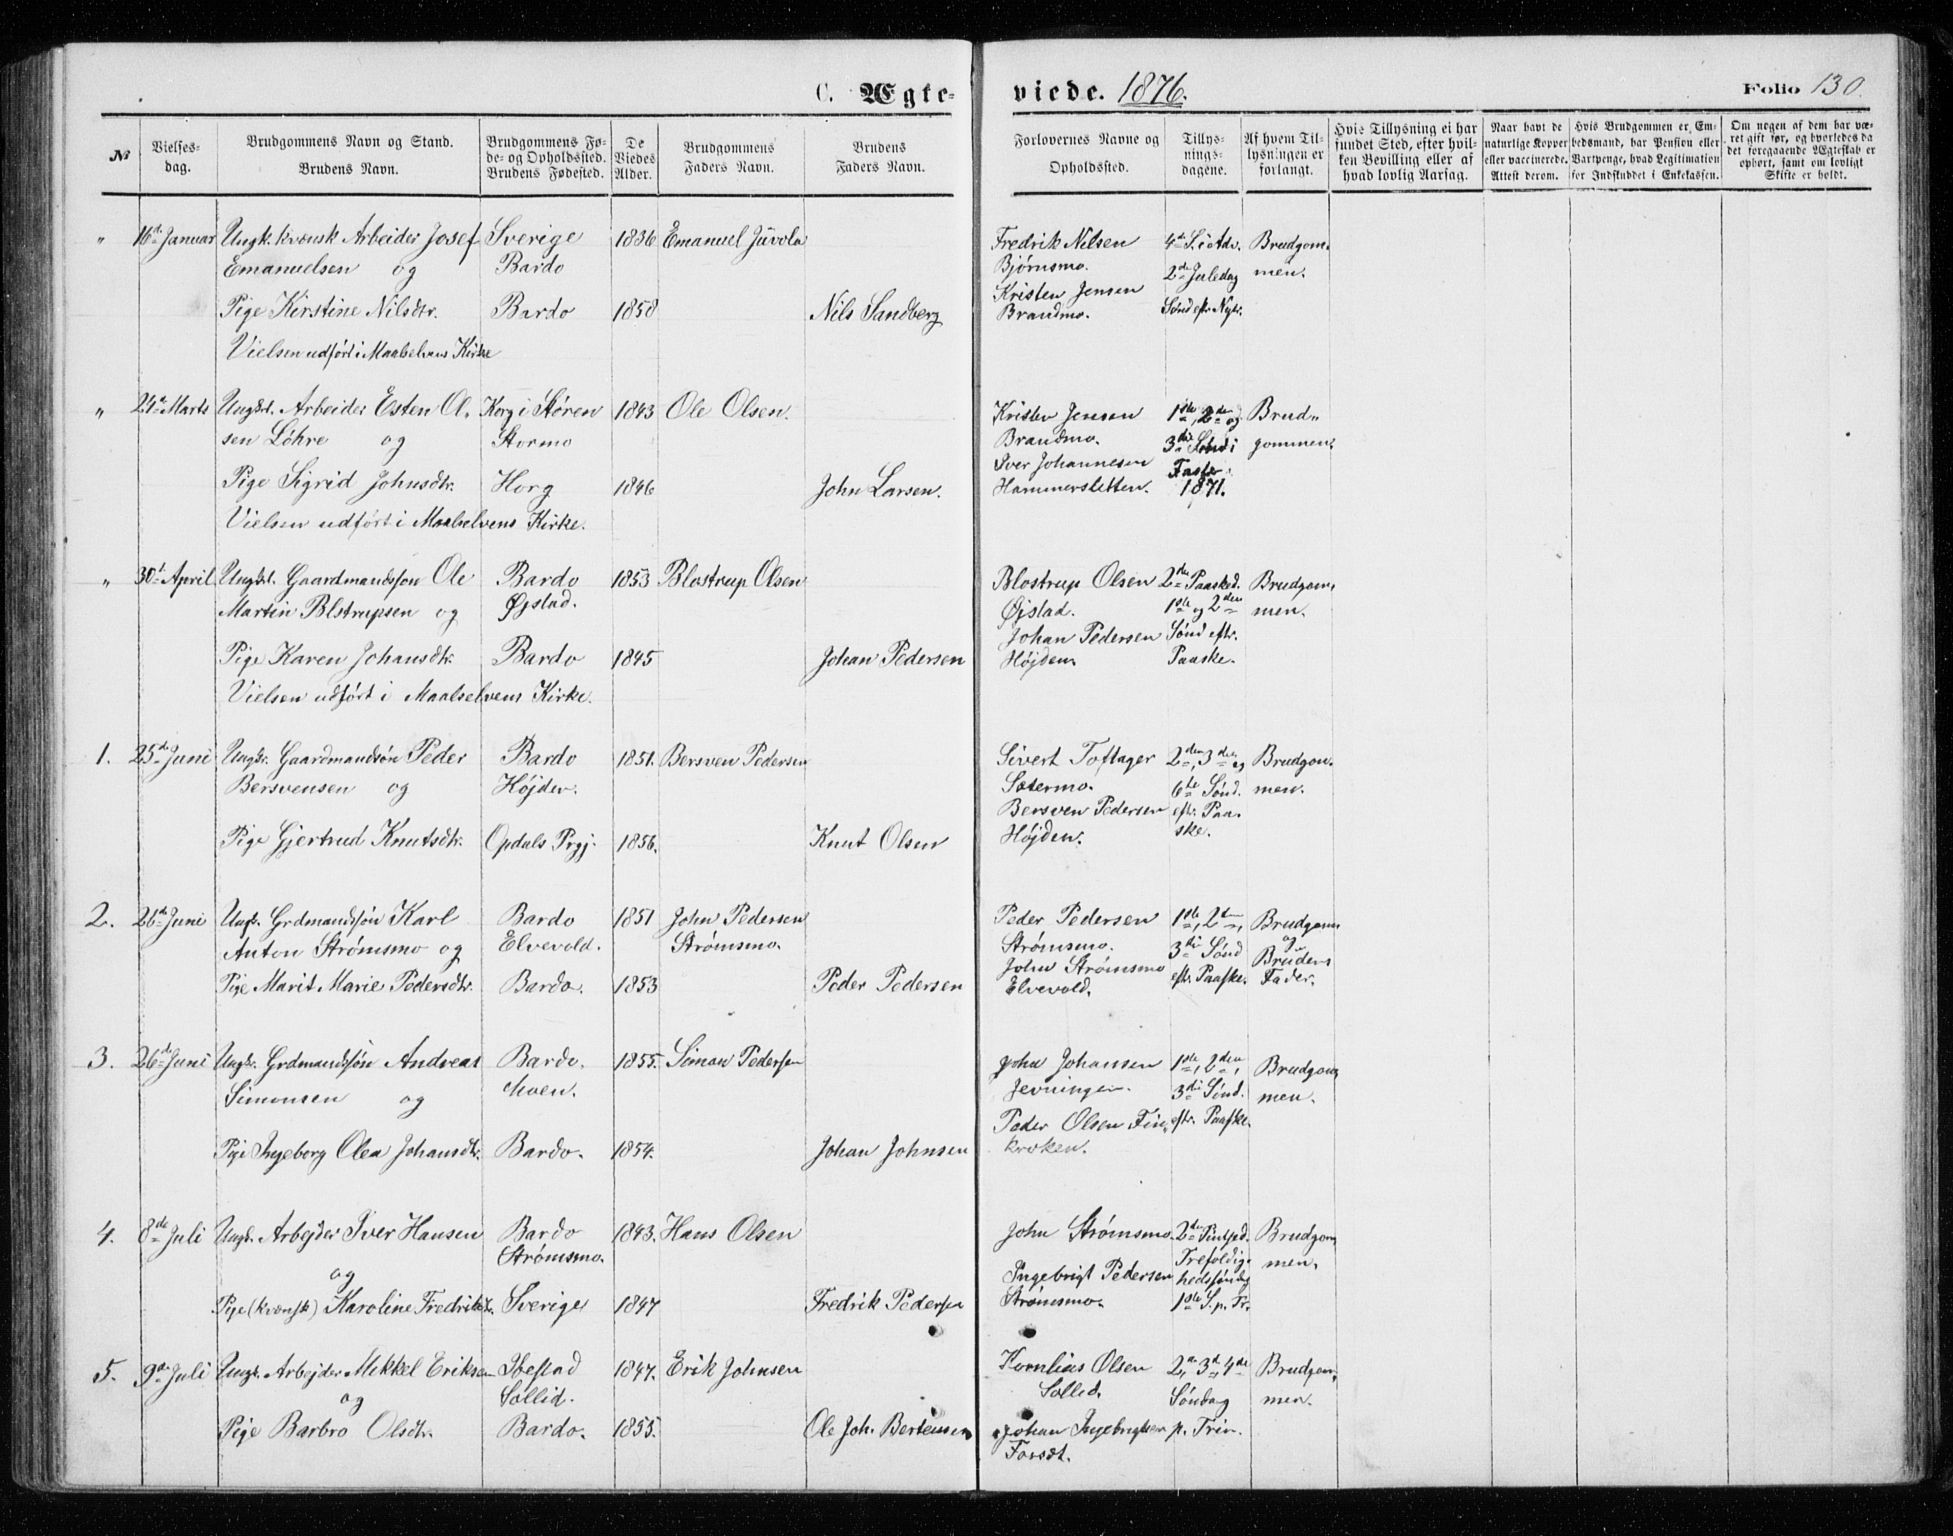 C. Ægte- viede. 1876. Folio 130.
№ | Vielses-dag. | Brudgommens Navn og Stand. Brudens Navn. | Brudgommens Fø-de- og Opholdssted. Brudens Fødested. | De Viedes Alder. | Brudgommens Faders Navn. | Brudens Faders Navn. | Forlovernes Navne og Opholdssted. | Tillys-nings-dagene. | Af hvem Til-lysningen er forlangt. | Hvis Tillysning ei har fundet Sted, efter hvil-ken Bevilling eller af hvad lovlig Aarsag. | Naar havt de naturlige Kopper eller vaccinerede. Attest derom. | Hvis Brudgommen er Em-bedsmand, har Pension eller Vartpenge, hvad Legitimation for Indskuddet i Enkekassen. | Om nogen af dem har væ-ret gift før, og hvorledes da det foregaaende Ægteskab er ophørt, samt om lovligt Skifte er holdt.
" 16de Januar Ungk. kvænsk Arbeider Josef Sverige 1836 Emanuel Juvola Fredrik Nilsen 4de S. i Adv. Brudgom-
Emanuelsen og Bardo Bjørnsmo. 2den Juledag men.
Kristen Jensen
Pige Kirstine Nilsdtr. Bardo 1858 Nils Sandberg Brandmo. Sønd eftr Nytr.
Vielsen udført i Maalselvens Kirke
" 24de Marts Ungkl. Arbeider Esten Ol- Korg i Støren 1843 Ole Olsen. Kristen Jensen 1ste, 2den og Brud-
sen Løhre og Stormo Brandmo. 3die Sønd i gommen.
Iver Johannesen Faster
Pige Sigrid Johnsdtr. Horg 1846 John Larsen. Hammersletten. 1871.
Vielsen udført i Maalselvens Kirke.
" 30te April Ungkl. Gaardmandsson Ole Bardo 1853 Blostrup Olsen Blostrup Olsen 2den Paasked. Brudgom-
Martin Blstrupsen og Øjstad. Øjstad. 1ste og 2den men.
Johan Pedersen Sønd eftr.
Pige Karen Johansdtr. Bardo 1845 Johan Pedersen Højden Paaske.
Vielsen udført i Maalselvens Kirke.
1. 25de Juni Ungkr. Gaardmandsøn Peder Bardo 1851. Bersven Pedersen Sivert Toftager 2den, 3die og Brudgom-
Bersvensen og Højden. Sætermo. 6te Sønd. men.
Bersven Pedersen eftr. Paa-
Pige Gjertrud Knutsdtr. Opdals Prgj. 1856. Knut Olsen Højden. ske.
2. 26de Juni Ungk. Grdmandssøn Karl Bardo 1851 John Pedersen Peder Pedersen 1ste, 2den, Brudgom
Anton Strømsmo og Elvevold. Strømsmo. Strømsmo. 3die Sønd og Brudens
John Strømsmo
Pige Marit Marie Pedersdtr. Bardo. 1853 Peder Pedersen Elvevold. eftr. Paaske. Fader.
3. 26de Juni Ungkr. Grdmandssøn Andreas Bardo. 1855. Simon Pedersen John Johansen 1ste, 2den, Brudgom-
Simonsen og Moen. Jevningen. 3die Sønd. men.
Peder Olsen Fin- eftr. Paaske.
Pige Ingeborg Olea Johansdtr. Bardo. 1854. Johan Johnsen kroken.
4. 8de Juli Ungk. Arbejder Iver Hansen Bardo 1843. Hans Olsen John Strømsmo. 2den Pintsed. Brudgom-
Strømsmo. Trefoldig- men.
og Ingebrigt Pedersen hedssøndag
Pige (kvænsk) Karoline Fredriksdtr. Sverige 1847 Fredrik Pedersen Strømsmo. 1ste S. p. Tr.
5. 9de Juli Ungk. Arbejder Mikkel Eriksen Ibestad 1847. Erik Johnsen Kornlius Olsen 2den, 3die, 4de Brudgom-
og Sollid. Sollid. Søndag men.
Pige Barbro Olsdtr. Bardo. 1855. Ole Joh. Berteussen Johan Ingebrigtsen p. Trin.
Fossdt.